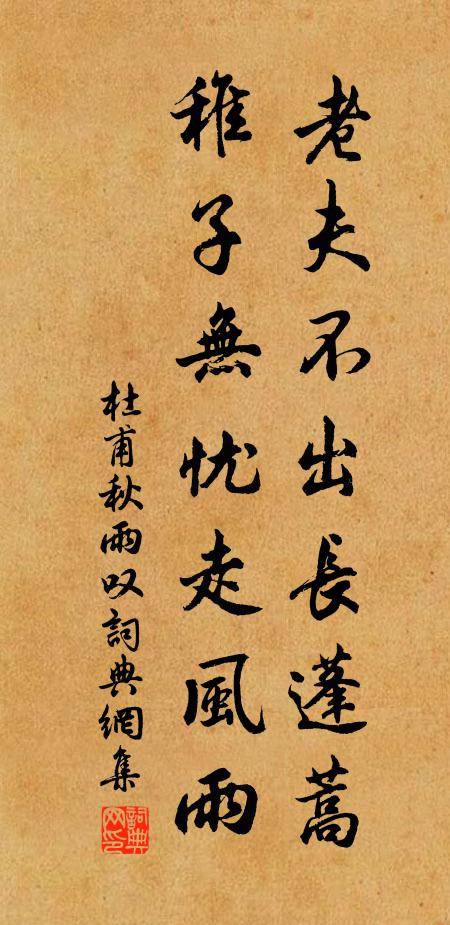 老夫不出長蓬蒿
稚子無忧走風雨
杜甫秋雨叹詞典網集
詞典网印